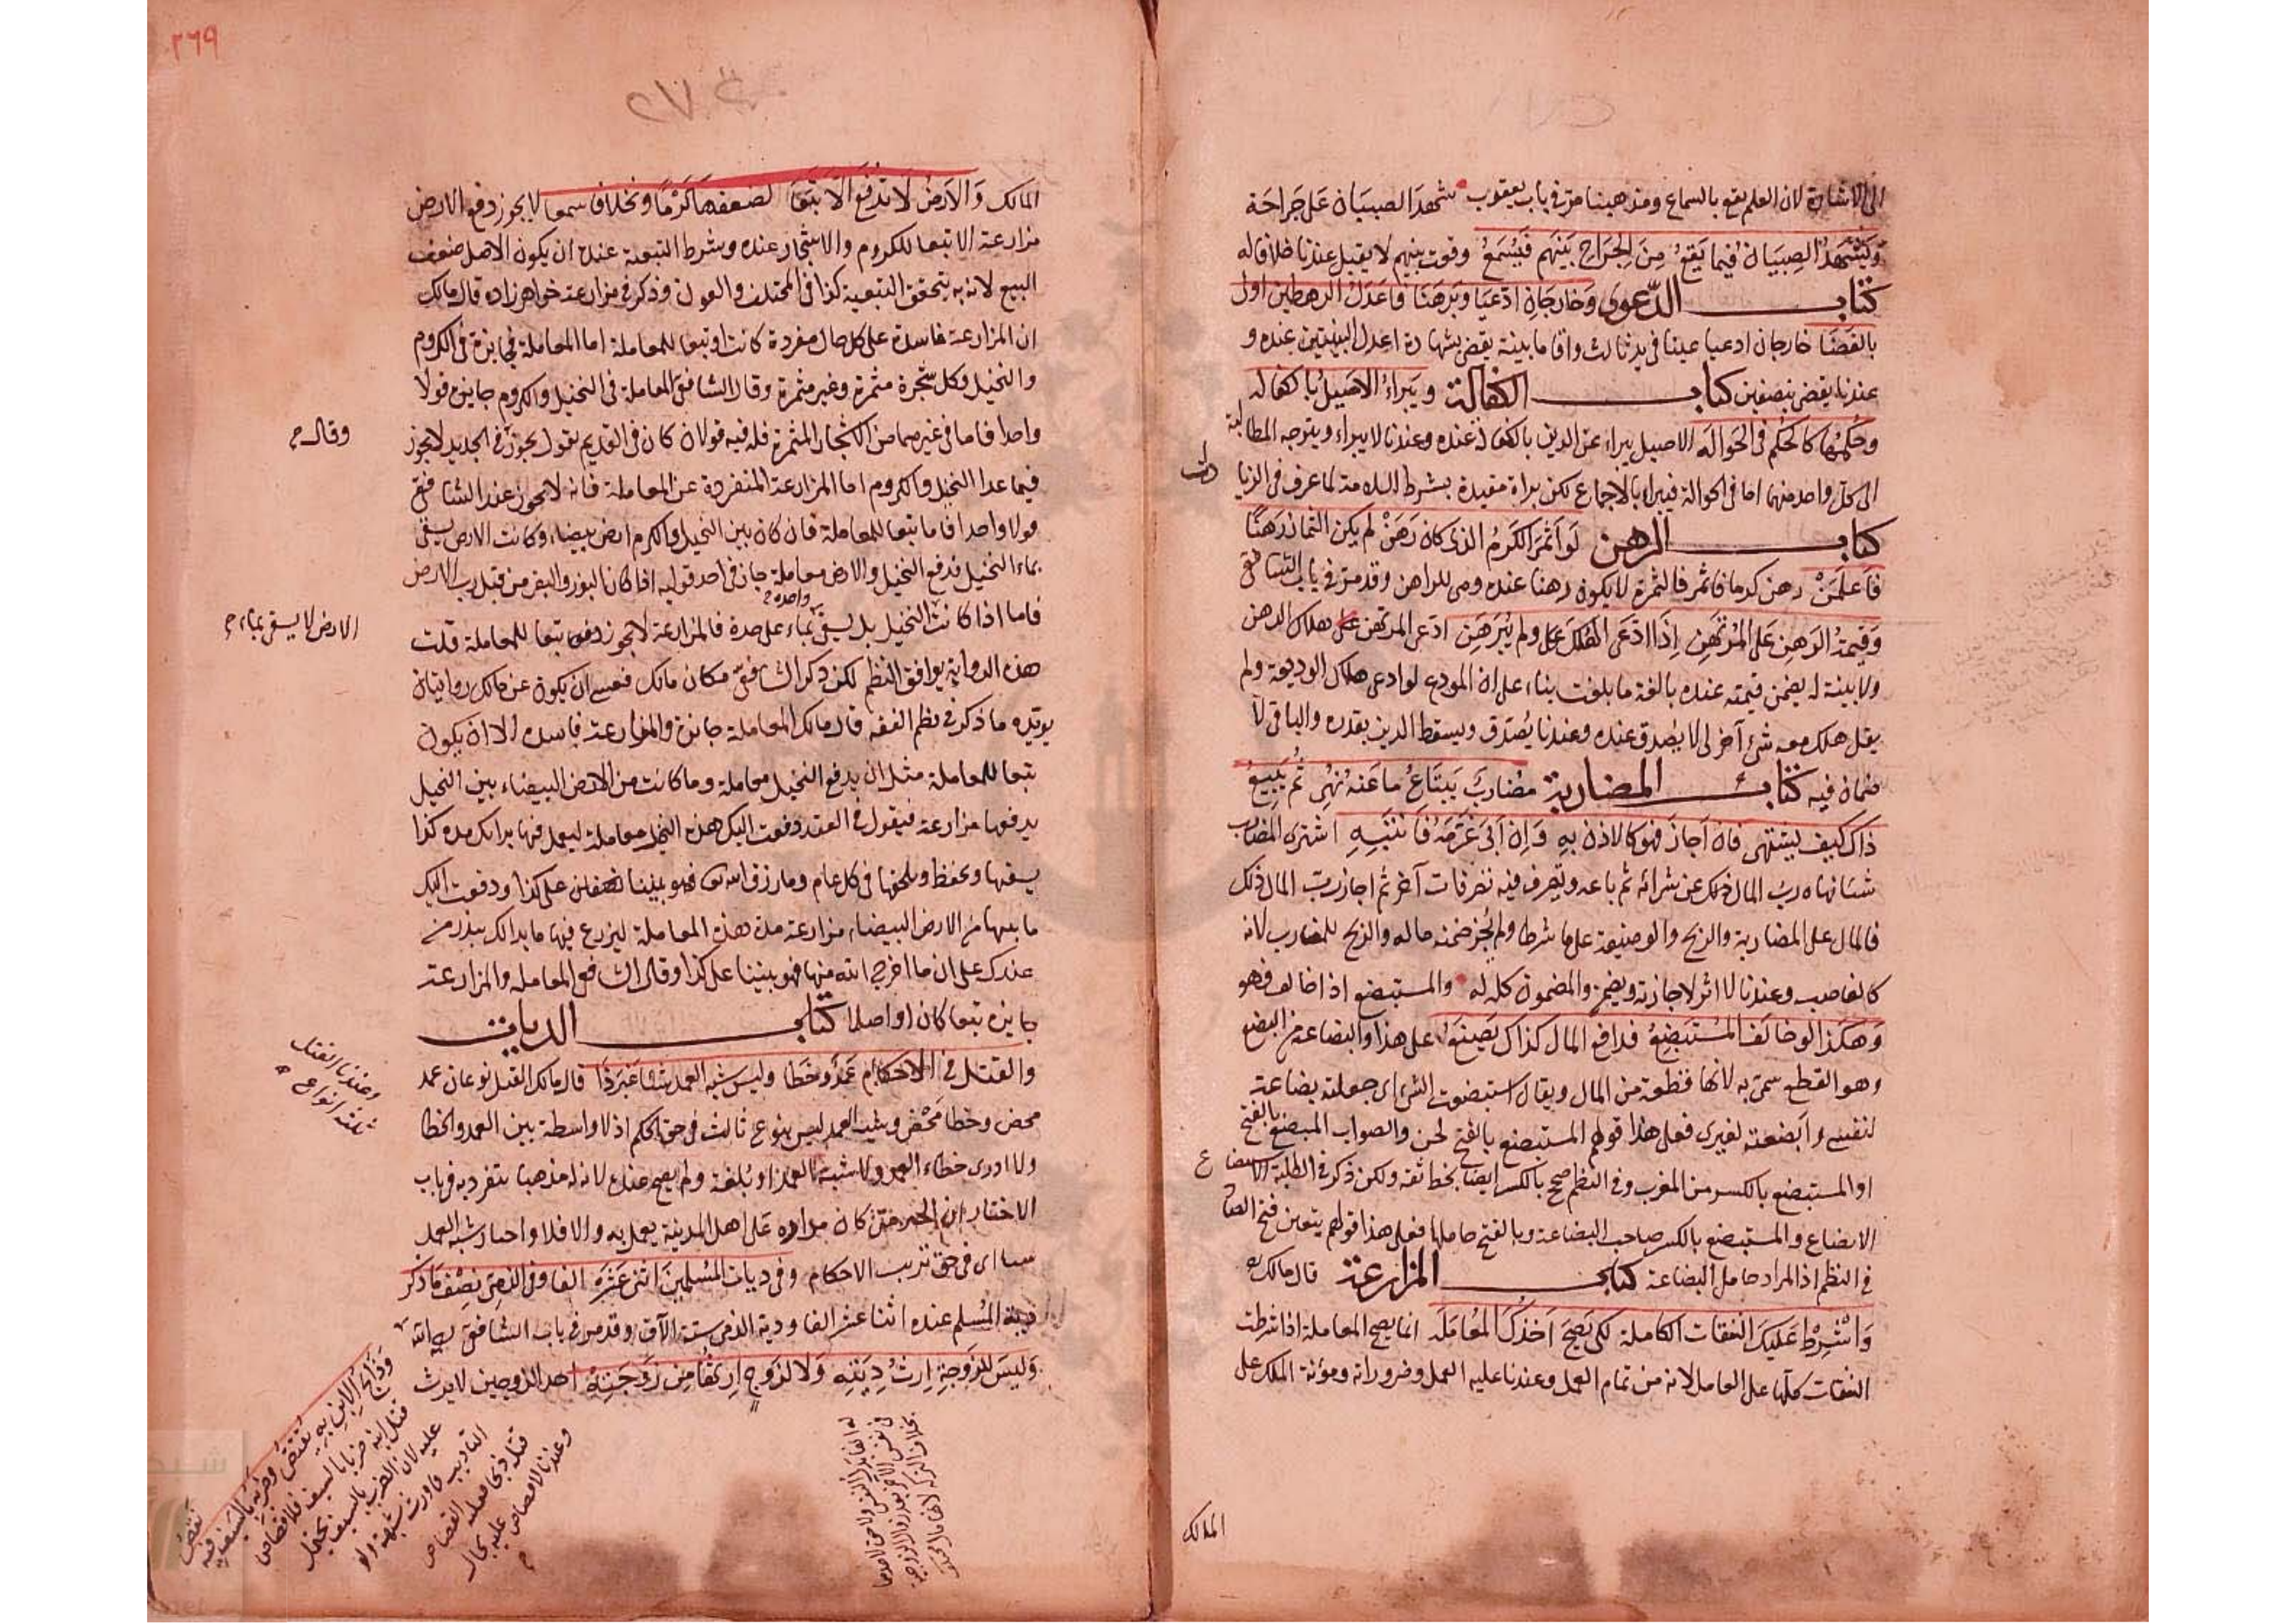 الى الاشارة لان العلم يقع بالسماع ومذهبنا مر في باب يعقوب شهد الصبيان على جراحة
وَيَشْهَدُ الصِبيَان فيما يَقَعُ مِنَ الجِرَاحِ بَينَهم فَيُسْمَعُ وقوت بينهم لا يقبل عندنا خلافا له
كتاب الدّعوى وَخارجَانِ ادّعَيَا وَبَرهَنَا فاعدَلُ الرهطين اولى
بالقضَا خارجان ادعيا عينا في يد ثالث واقاما بينة يقضى بشهادة اعدل البينتين عنده و
عندنا يقضى بنصفين كتاب الكفالة ويَبراءُ الاصيلُ بالكفاله
وحُكمُها كالحُكم في الحَوالَه الاصيل يبراء عن الدين بالكفالة عنده وعندنا لا يبراء ويتوجه المطالبة
الى كل واحد منهما اما في الحوالة فيبراء بالاجماع لكن براة مقيدة بشرط السلامة لما عرف في الزيادات
كتاب الرهن لَو اَثمَرَ الكَرمُ الذى كان رَهَنْ لم يكن الثمار رَهنًا
فاعلَمَنْ رهن كرما فاثمر فالثمرة لا يكون رهنا عنده وهى للراهن وقد مر في باب الشافعى
وَقيمَةُ الرَهنِ عَلى المُرتَهِنِ اِذا ادّعَى الهُلكَ ولم يُبَرهَنِ ادعى المرتهن هلاك الرهن
ولا بينة له يضمن قيمته عنده بالغة ما بلغت بناء على ان المودع لو ادعى هلاك الوديعة ولم
يقل هلك معه شئ آخر لى لا يصدق عنده وعندنا يُصدق ويسقط الدين بقدره والباقى لا
ضمان فيه كتاب المضاربة مضاربٌ يَبتَاعُ ما عَنه نُهِى ثُم يَبِيعُ
ذاك كيف يشتهى فان اَجازَ فهو كالاذن بهِ وَاِن اَبى غَرّمَهُ فانتَبِهِ اشترى المضارب
شيئا نهاه رب المال ذلك عن شرائه ثم باعه وتصرف فيه تصرفات آخر ثم اجاز رب المال ذلك
فالمال على المضاربة والربح والوضيعة على ما شرطا ولم يُجز ضمنه ماله والربح للمضارب لانه
كالغاصب وعندنا لا اثر لاجازته ويضمن والمضمون كله له والمستبضع اذا خالف فهو
وَهكَذا لو خالفَ المُستَبضِعُ فدافع المال كذاك يَصنَعُ على هذا والبضاعة من البضع
وهو القطع سمى به لانها قطعة من المال ويقال استبضعت الشئ اى جعلته بضاعة
لنفسى وأبضعته لغيرى فعلى هذا قولهم المستبضع بالفتح لحن والصواب المبضع بالفتح
او المستبضع بالكسر من المغرب وفى النظم صح بالكسر ايضا بخط ثقه ولكن ذكر في الطلبة الاستبضاع
الابضاع والمستبضع بالكسر صاحب البضاعة وبالفتح حاملها فعلى هذا قولهم يتعين فتح الضاد
في النظم اذ المراد حامل البضاعة كتاب المزارعة قال مالك
وَاشْرِطْ عَليكَ النفقات الكاملة لكى يَصِحَّ اَخذُكَ المُعامَلَه انما يصح المعاملة اذا شرطت
النفقات كلها على العامل لانه من تمام العمل وعندنا عليه العمل وضروراته ومؤنة الملك على
المالك
٢٦٩
٢٧٠
المالك وَالاَرضُ لا تُدفَع الّا تَبَعَا لضعفها كَرْمًا وَنخلا فاسمعا لا يجوز دفع الارض
مزارعة الا تبعا للكروم والاشجار عنده وشرط التبعية عنده ان يكون الاصل ضعف
البيع لانه به يتحقق التبعية كذا في المختلف والعون وذكر في مزارعة خواهرزاده قال مالك
ان المزارعة فاسدة على كل حال مفردة كانت او تبعا للمعاملة اما المعاملة فجايزة في الكروم
والنخيل وكل شجرة مثمرة وغير مثمرة وقال الشافعى المعاملة في النخيل والكروم جايزة قولا
واحدا فاما في غيرهما من الاشجار المثمرة فله فيه قولان كان في القديم يقول يجوز وفى الجديد لا يجوز
فيما عدا النخيل والكروم اما المزارعة المنفردة عن المعاملة فانه لا يجوز عند الشافعى
قولا واحدا فاما تبعا للمعاملة فان كان بين النخيل والكرم ارض بيضاء وكانت الارض يسقى
بماء النخيل فدفع النخيل والارض معاملة جاز في احد قوليه اذا كان البذر والبقر من قبل رب الارض
فاما اذا كانت النخيل بل يسقى بماء على حدة فالمزارعة لا يجوز تبعا للمعاملة قلت
هذه الرواية يوافق النظم لكن ذكر الشافعى مكان مالك فعسى ان يكون عن مالك روايتان
يؤيده ما ذكر في نظم الفقه قال مالك المعاملة جايزة والمزارعة فاسدة الا ان يكون
تبعا للمعاملة مثل ان يدفع النخيل معاملة وما كانت من الارض البيضاء بين النخيل
يدفعها مزارعة فيقول في العقد دفعت اليك هذه النخيل معاملة ليعمل فيها برأيك مدة كذا
يسقيها ويحفظ ويلقحها في كل عام وما رزق الله فهو بيننا نصفان على كذا ودفعت اليك
ما بينها من الارض البيضاء مزارعة مدة هذه المعاملة ليزرع فيها ما بدا لك ببذر من
عندك على ان ما اخرج الله منها فهو بيننا على كذا وقال الشافعى المعاملة والمزارعة
جايزه تبعا كان او اصلا كتاب الديات
والقتل في الاحكام عَمْدٌ وخطا وليس شبه العمد شيئا غَيرَ ذا قال مالك القتل نوعان عمد
محض وخطا مَحض وشبه العمد ليس بنوع ثالث في حق الحكم اذ لا واسطة بين العمد والخطا
ولا ادرى خطاء العمد ولا شبه العمد ولم يصح عنده لانه له مذهبا يتفرد به في باب
الاخبار ان الخبر متى كان مداره على اهل المدينة يعمل به والا فلا واخبار شبه العمد
اى في حق ترتيب الاحكام وفى ديات المُسلمينَ اثنى عَشَرَه الفا وفى الذمى نِصْف ما ذكر
دية المُسلم عنده اثنا عشر الفا ودية الذمى ستة الآف وقد مر في باب الشافعى رحمه الله
وَليسَ للزوجةِ اِرثُ دِيَتِه وَلا لزَوجٍ اِرثُها مِن زَوجَتِهْ احد الزوجين لا يرث
وقال
واحدة
الارض لا يسقى بماء
وعندنا القتل
ثلثة انواع
وَذَابحُ الابنِ بِهِ يُقتَصُّ وَضَربُهُ بالسَيفِ فيه
قتل ابنه ضربا بالسيف فلا قصاص
عليه لان الضرب بالسيف يحتمل
التاديب فاورث شبهة ولو
قتله ذبحا فعليه القصاص
وعندنا لا قصاص عليه بحال